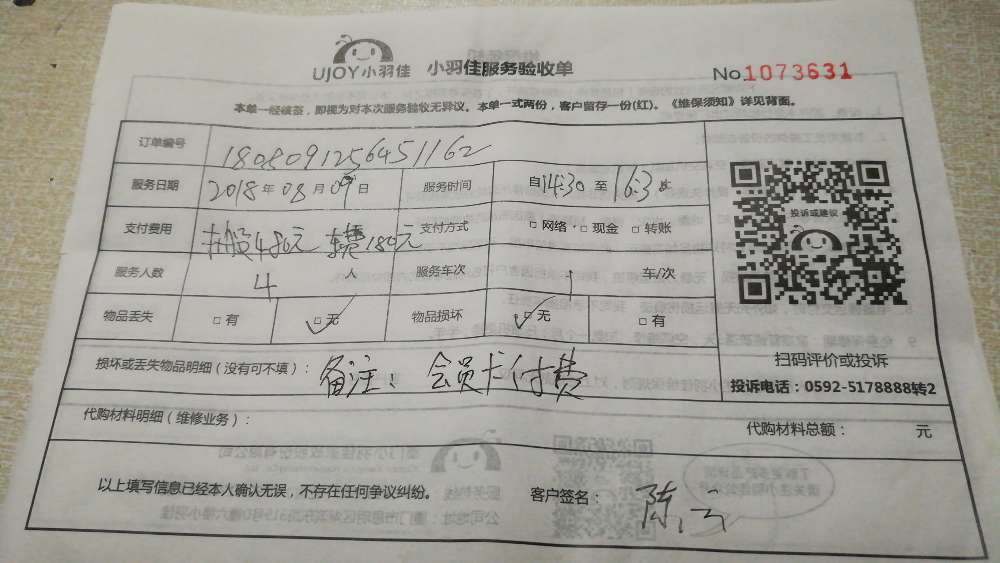 UJOY小羽佳 小羽佳服务验收单 No.1073631
本单一经核签，即视为对本次服务验收无异议。本单一式两份，客户留存一份(红)。《维保须知》详见背面。
订单编号 1808091256451162
服务日期 2018年08月09日 服务时间 自14:30至16:30
支付费用 搬480元 车费180元 支付方式 □网络 □现金 □转账
服务人数 4人 服务车次 1 车/次
物品丢失 □有 □无 物品损坏 □无 □有
投诉或建议
扫码评价或投诉
投诉电话：0592-5178888转2
损坏或丢失物品明细（没有可不填）： 备注：会员卡付费
代购材料明细（维修业务）： 代购材料总额： 元
以上填写信息已经本人确认无误，不存在任何争议纠纷。 客户签名：陈